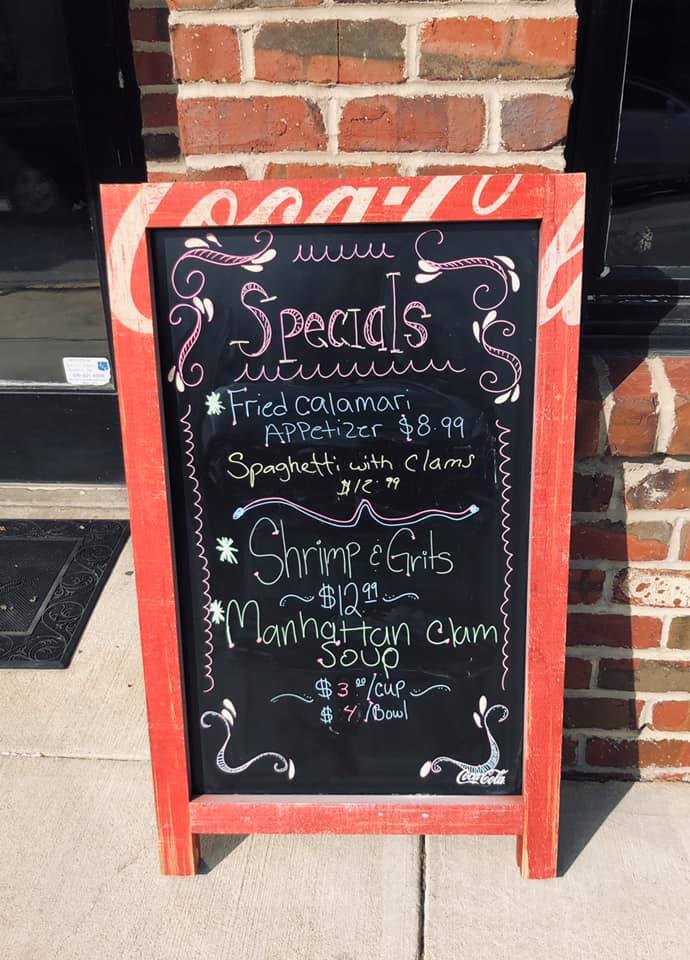 Coca-Cola
Specials
* Fried calamari
Appetizer $8.99
Spaghetti with Clams
$12.99
* Shrimp & Grits
~ $12.99 ~
* Manhattan Clam
Soup
~ $3.00/cup ~
$4/Bowl
Coca-Cola